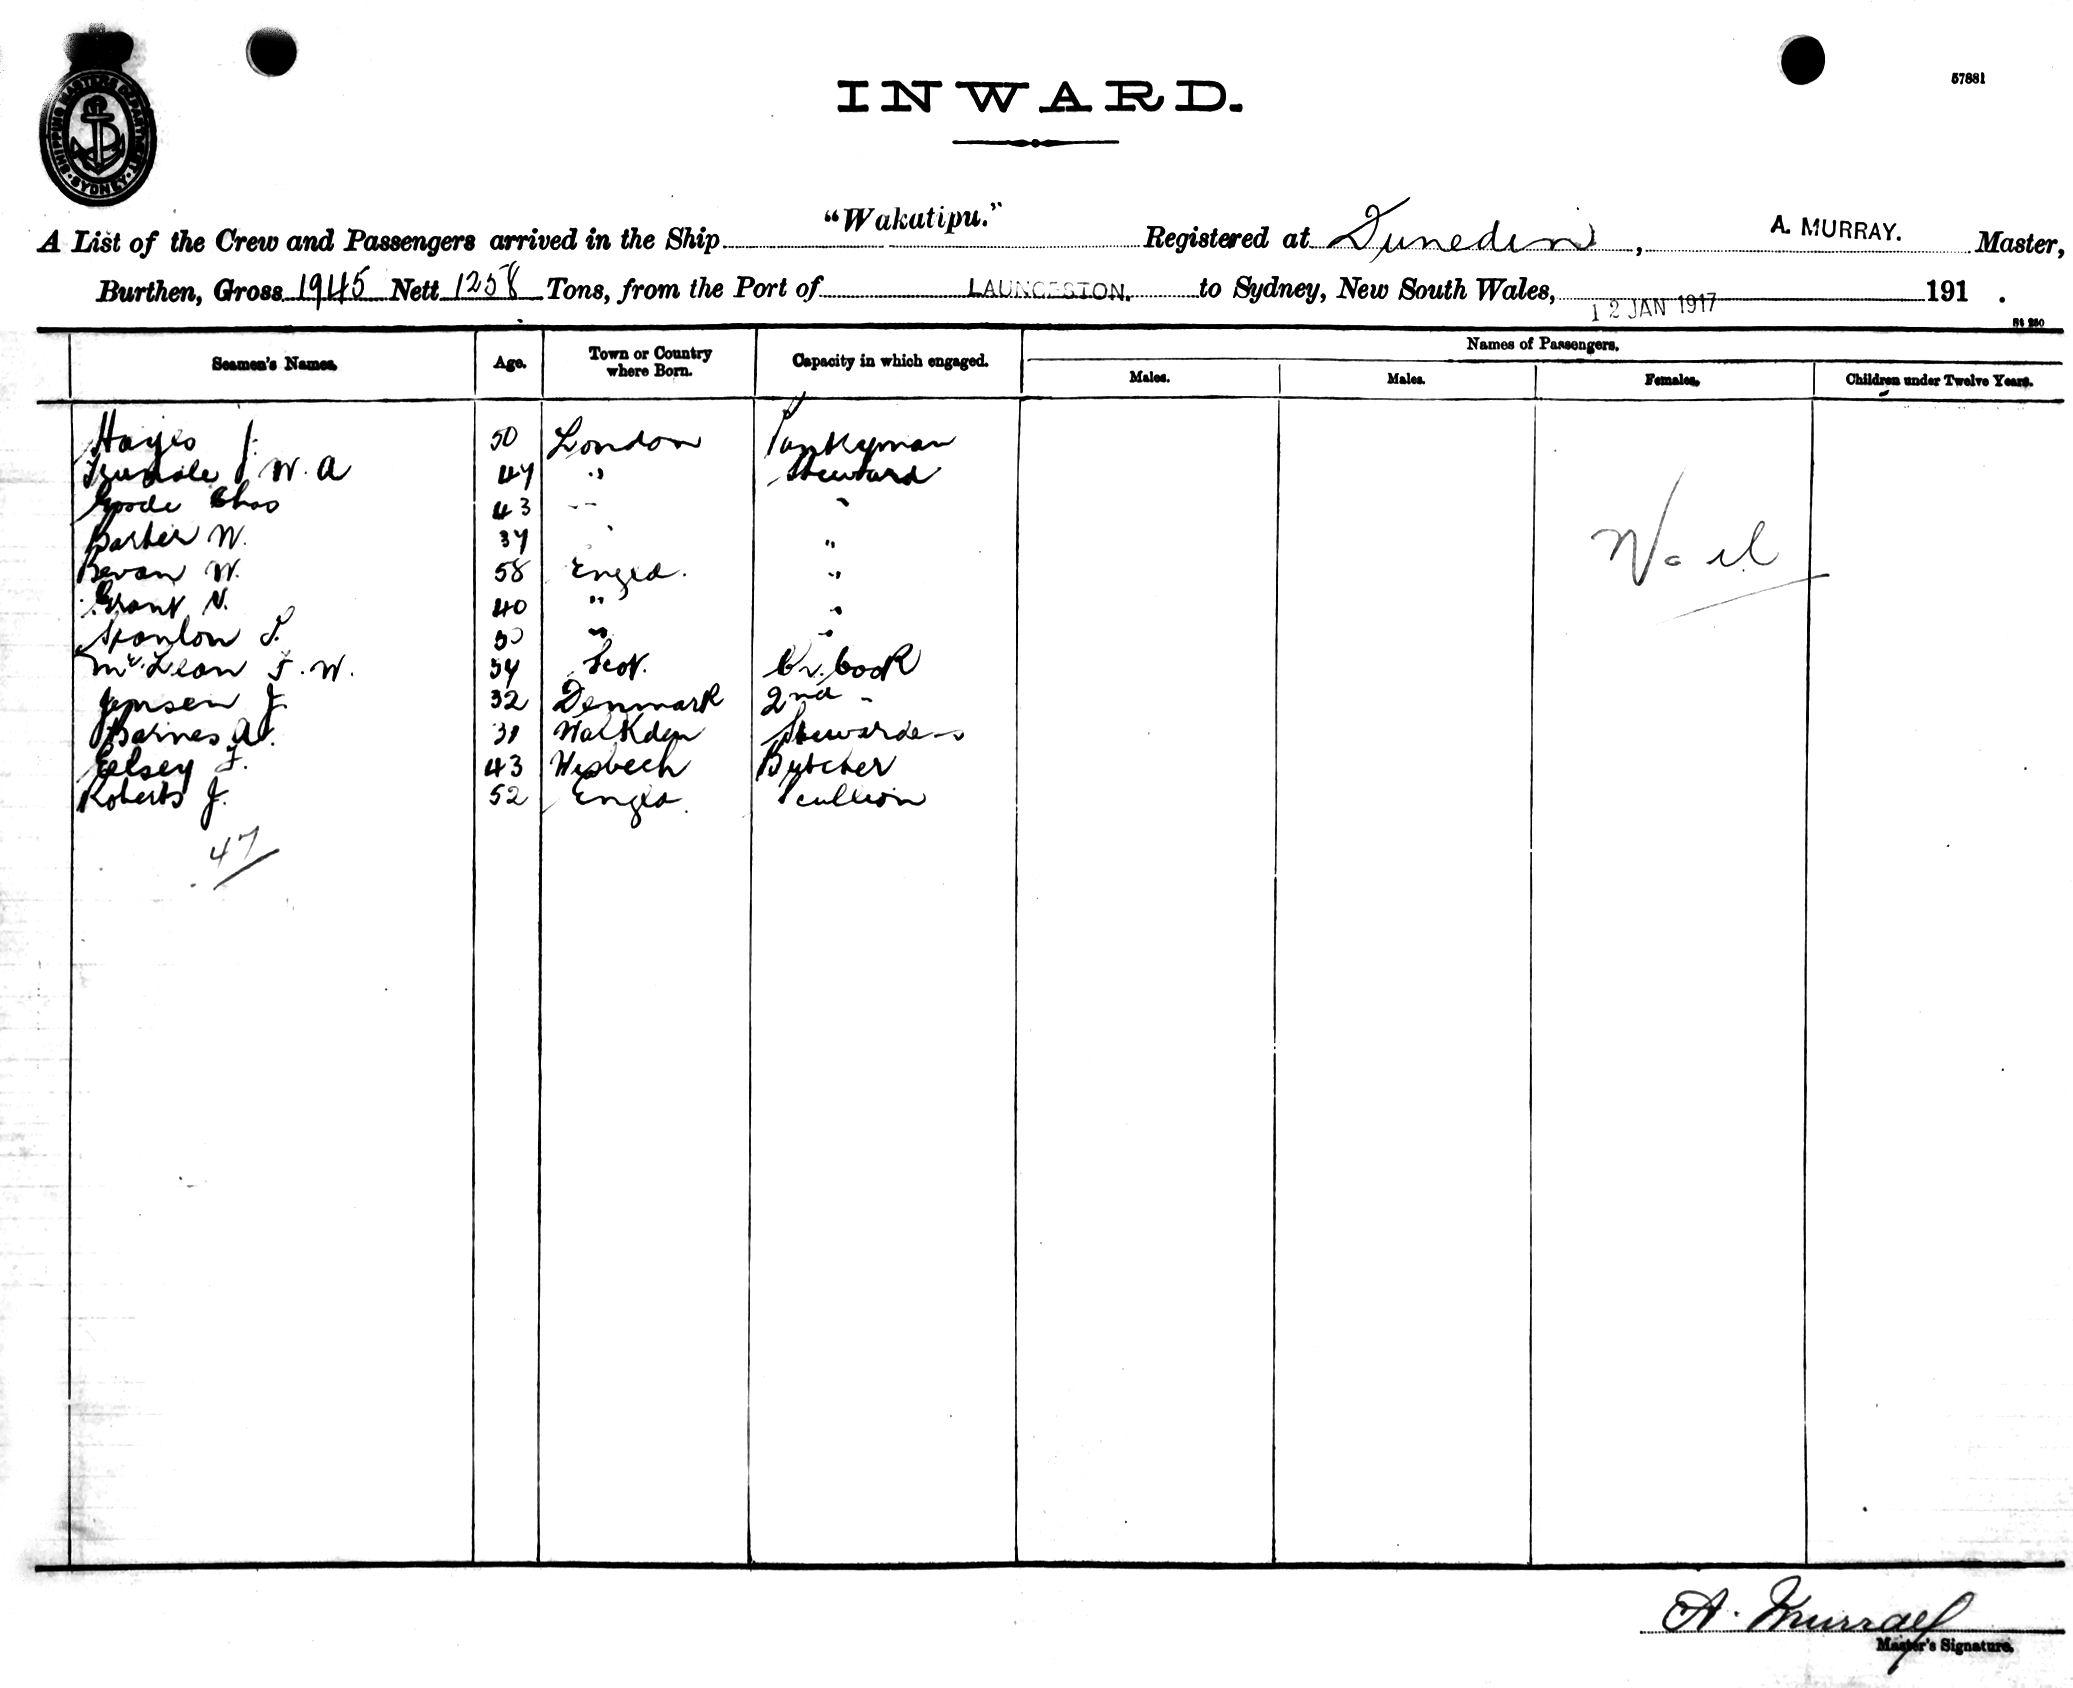 SHIPPING MASTERS DEPARTMENT SYDNEY
57881
INWARD.
A List of the Crew and Passengers arrived in the Ship "Wakatipu." Registered at Dunedin, A. MURRAY. Master,
Burthen, Gross 1945 Nett 1258 Tons, from the Port of LAUNCESTON. to Sydney, New South Wales, 12 JAN 1917 191 .
St 250
Seamen's Names. Age. Town or Country where Born. Capacity in which engaged. Names of Passengers.
Males. Males. Females. Children under Twelve Years.
Hayes J. 50 London Pantryman
W. A 47 " Steward
Goode Chas 43 " "
Barber W. 37 " "
Bevan W. 58 Engld. "
Grant N. 40 " "
Stanton S. 30 " "
McLean F. W. 54 Scot. Ch. Cook
Jensen J. 32 Denmark 2nd "
Barnes A. 31 Walkden Stewardess
Eelsey F. 43 Wisbech Butcher
Roberts J. 52 Engld. Scullion
47
Nil
A. Murray
Master's Signature.